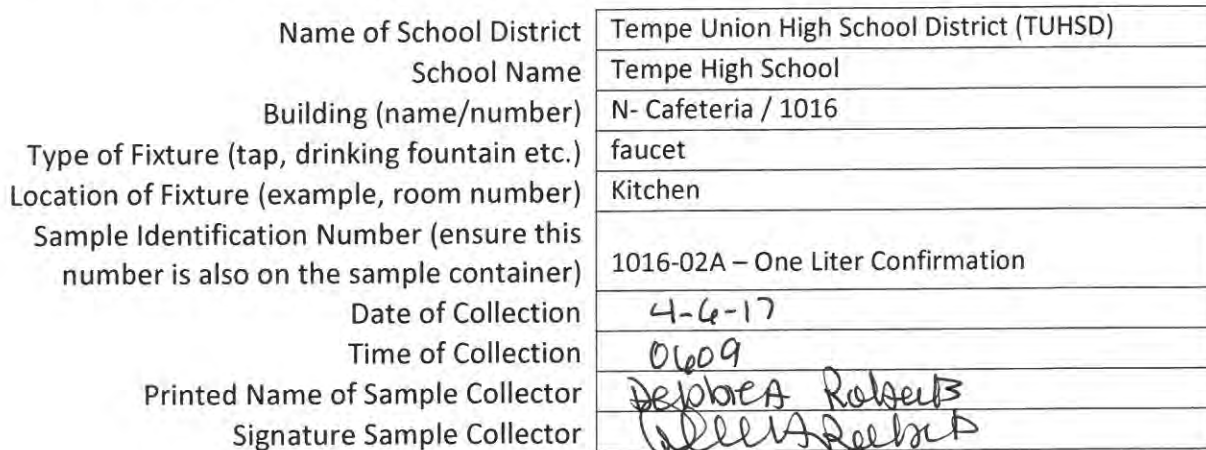 Name of School District Tempe Union High School District (TUHSD)
School Name Tempe High School
Building (name/number) N- Cafeteria / 1016
Type of Fixture (tap, drinking fountain etc.) faucet
Location of Fixture (example, room number) Kitchen
Sample Identification Number (ensure this
number is also on the sample container) 1016-02A – One Liter Confirmation
Date of Collection 4-6-17
Time of Collection 0609
Printed Name of Sample Collector Debbie A Roberts
Signature Sample Collector